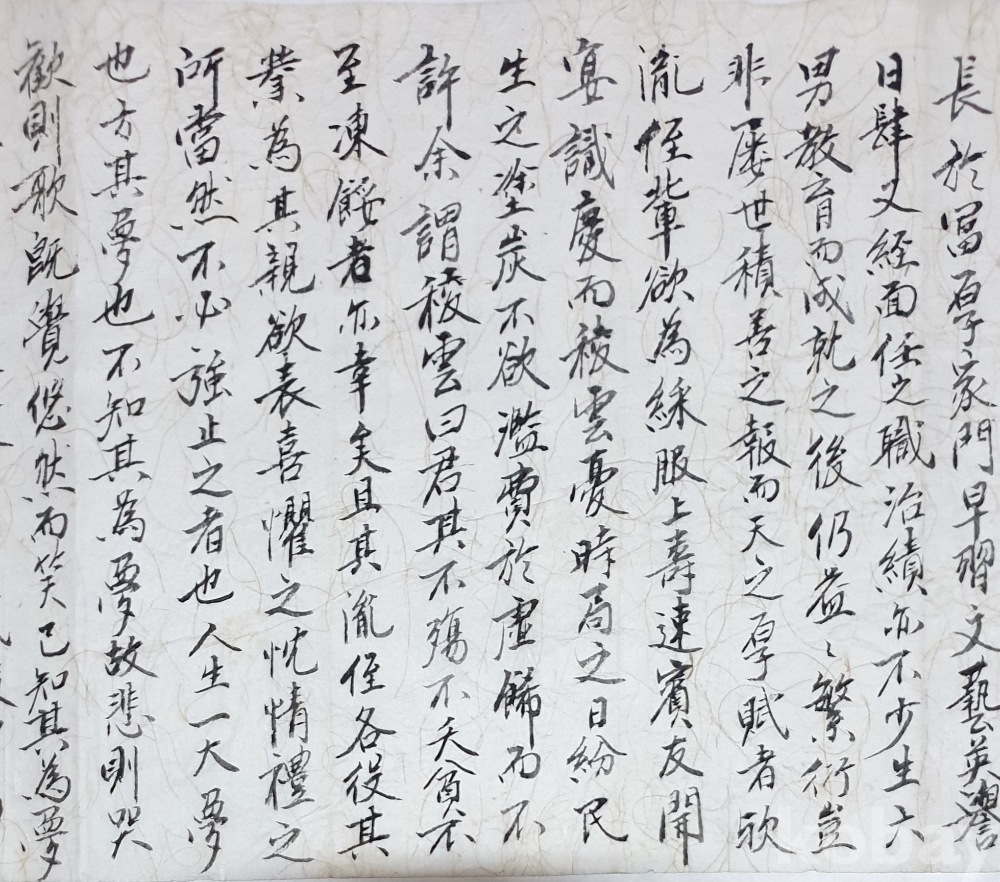 長於富厚家門早習文藝英譽
日肆又經面任之職治績亦不少生六
男教育而成就之後仍益〻繁衍豈
非屢世積善之報而天之厚賦者歟
胤侄輩欲為綵服上壽速賓友開
宴識慶而稜雲憂時局之日紛民
生之塗炭不欲濫費於虛歸而不
許余謂稜雲曰君其不殤不夭貧不
至凍餒者亦幸矣且其胤侄各役其
業為其親欲表喜懼之忱情禮之
所當然不必強止之者也人生一大夢
也方其夢也不知其為夢故悲則哭
歡則歌既覺悠然而笑已知其為夢
kobay